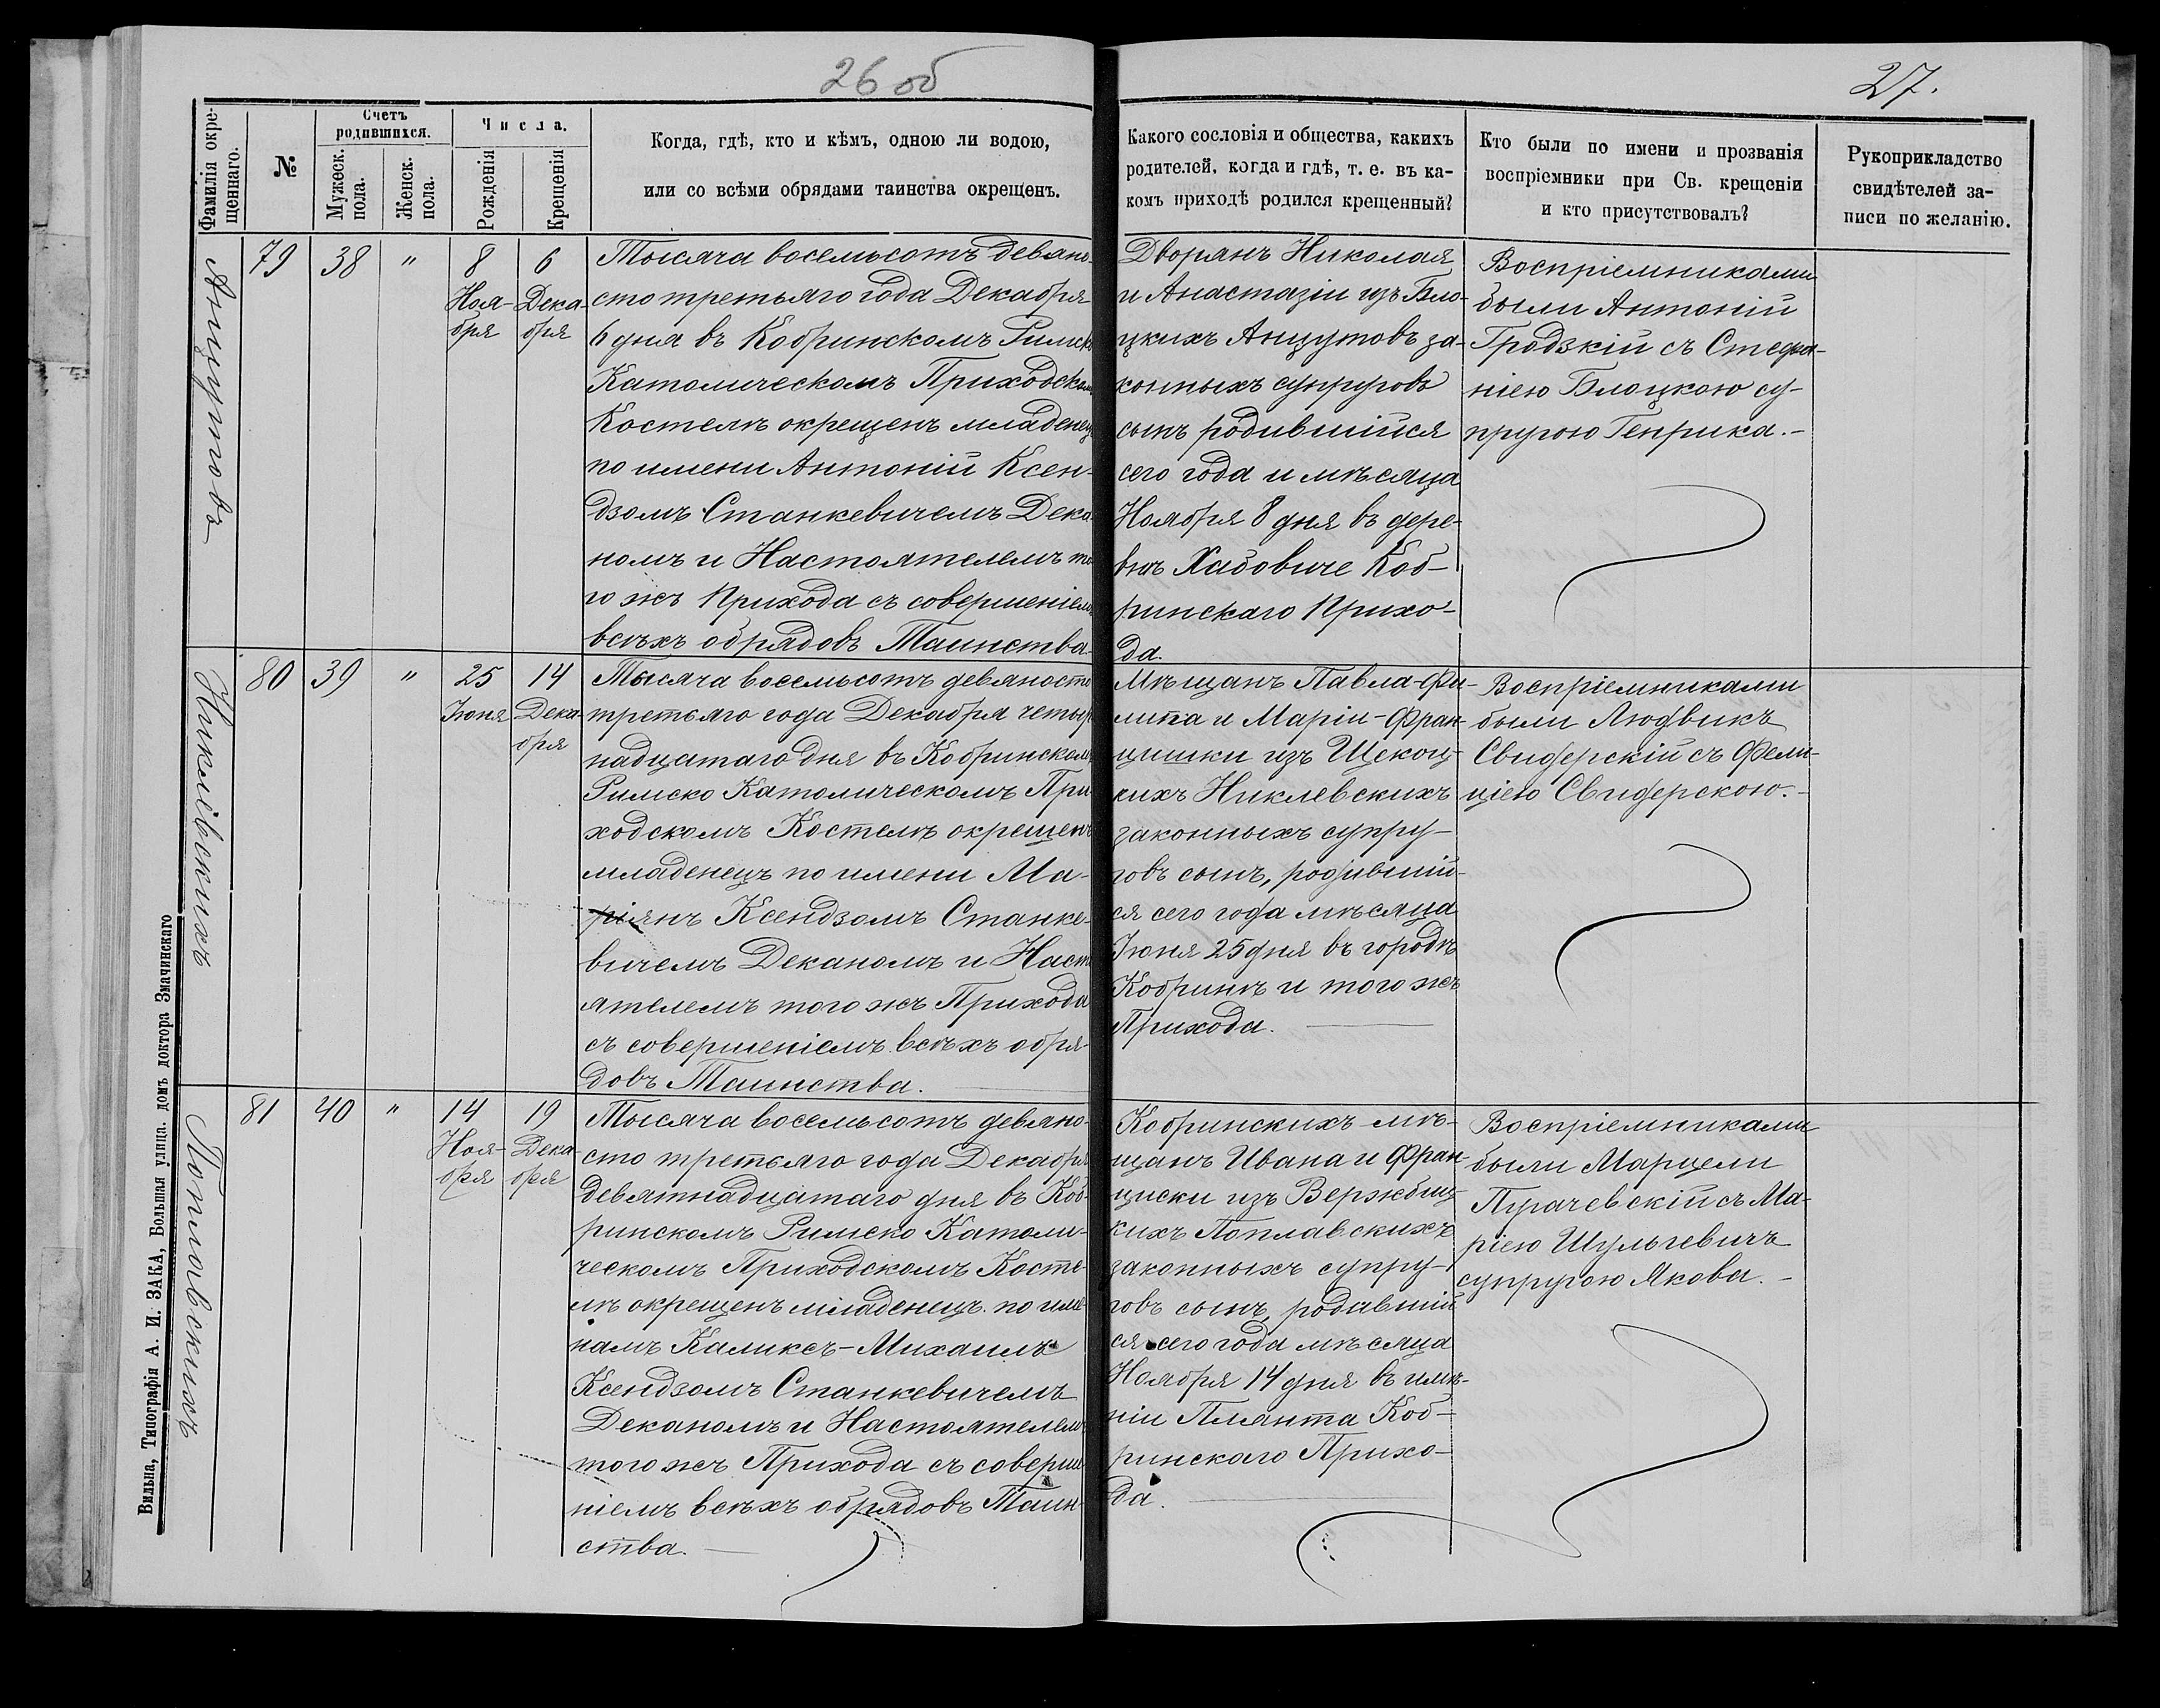 26 об
27.
Фамилія окре-
щеннаго.
№
Счетъ
родившихся.
Мужеск.
пола.
Женск.
пола.
Числа.
Рожденія
Крещенія
Когда, гдѣ, кто и кѣмъ, одною ли водою,
или со всѣми обрядами таинства окрещенъ.
Какого сословія и общества, какихъ
родителей, когда и гдѣ, т. е. въ ка-
комъ приходѣ родился крещенный?
Кто были по имени и прозванія
воспріемники при Св. крещеніи
и кто присутствовалъ?
Рукоприкладство
свидѣтелей за-
писи по желанію.
Анцутовъ
79
38
"
8
Ноя-
бря
6
Дека-
бря
Тысяча восемьсотъ девяно-
сто третьяго года Декабря
6 дня въ Кобринскомъ Римск
Католическомъ Приходском
Костелѣ окрещенъ младенец
по имени Антоній Ксен-
дзомъ Станкевичемъ Дека
номъ и Настоятелемъ то
го жъ Прихода съ совершеніем
всѣхъ обрядовъ Таинства.
Дворянъ Николая
и Анастазіи изъ Бло-
цкихъ Анцутовъ за-
конныхъ супруговъ
сынъ родившійся
сего года и мѣсяца
Ноября 8 дня въ дере-
внѣ Хабовиче Коб-
ринскаго Прихо-
да.
Воспріемниками
были Антоній
Гродзкій съ Стефа-
ніею Блоцкою су-
пругою Генрика.-
Никлевскихъ
80
39
"
25
Іюня
14
Дека-
бря
Тысяча восемьсотъ девяносто
третьяго года Декабря четыр
надцатаго дня въ Кобринском
Римско Католическомъ При
ходскомъ Костелѣ окрещенъ
младенецъ по имени Ма-
ріянъ Ксендзомъ Станке-
вичемъ Деканомъ и Насто
ятелемъ того жъ Прихода
съ совершеніемъ всѣхъ обря-
довъ Таинства.
Мѣщанъ Павла-Фи-
липа и Маріи-Фран-
цишки изъ Щекоц-
кихъ Никлевскихъ
законныхъ супру-
говъ сынъ, родившій-
ся сего года мѣсяца
Іюня 25 дня въ городѣ
Кобринѣ и того жъ
Прихода.
Воспріемниками
были Людвикъ
Свидерскій съ Фели-
ціею Свидерскою.-
Поплавскихъ
81
40
"
14
Ноя-
бря
19
Дека-
бря
Тысяча восемьсотъ девяно-
сто третьяго года Декабря
девятнадцатаго дня въ Коб-
ринскомъ Римско Католи-
ческомъ Приходскомъ Косте-
лѣ окрещенъ младенецъ по име
намъ Каликсъ-Михаилъ
Ксендзомъ Станкевичемъ
Деканомъ и Настоятелем
того жъ Прихода съ соверше
ніемъ всѣхъ обрядовъ Таин
ства.
Кобринскихъ мѣ-
щанъ Ивана и Фран-
циски изъ Вержбиц-
кихъ Поплавскихъ
законныхъ супру-
говъ сынъ, родившій-
ся сего года мѣсяца
Ноября 14 дня въ имѣ-
ніи Плянта Коб-
ринскаго Прихо-
да.
Воспріемниками
были Марцели
Пугачевскій съ Ма-
ріею Шульгевичъ
супругою Якова.-
Вильна, Типографія А. И. ЗАКА, Большая улица. домъ доктора Змачинскаго